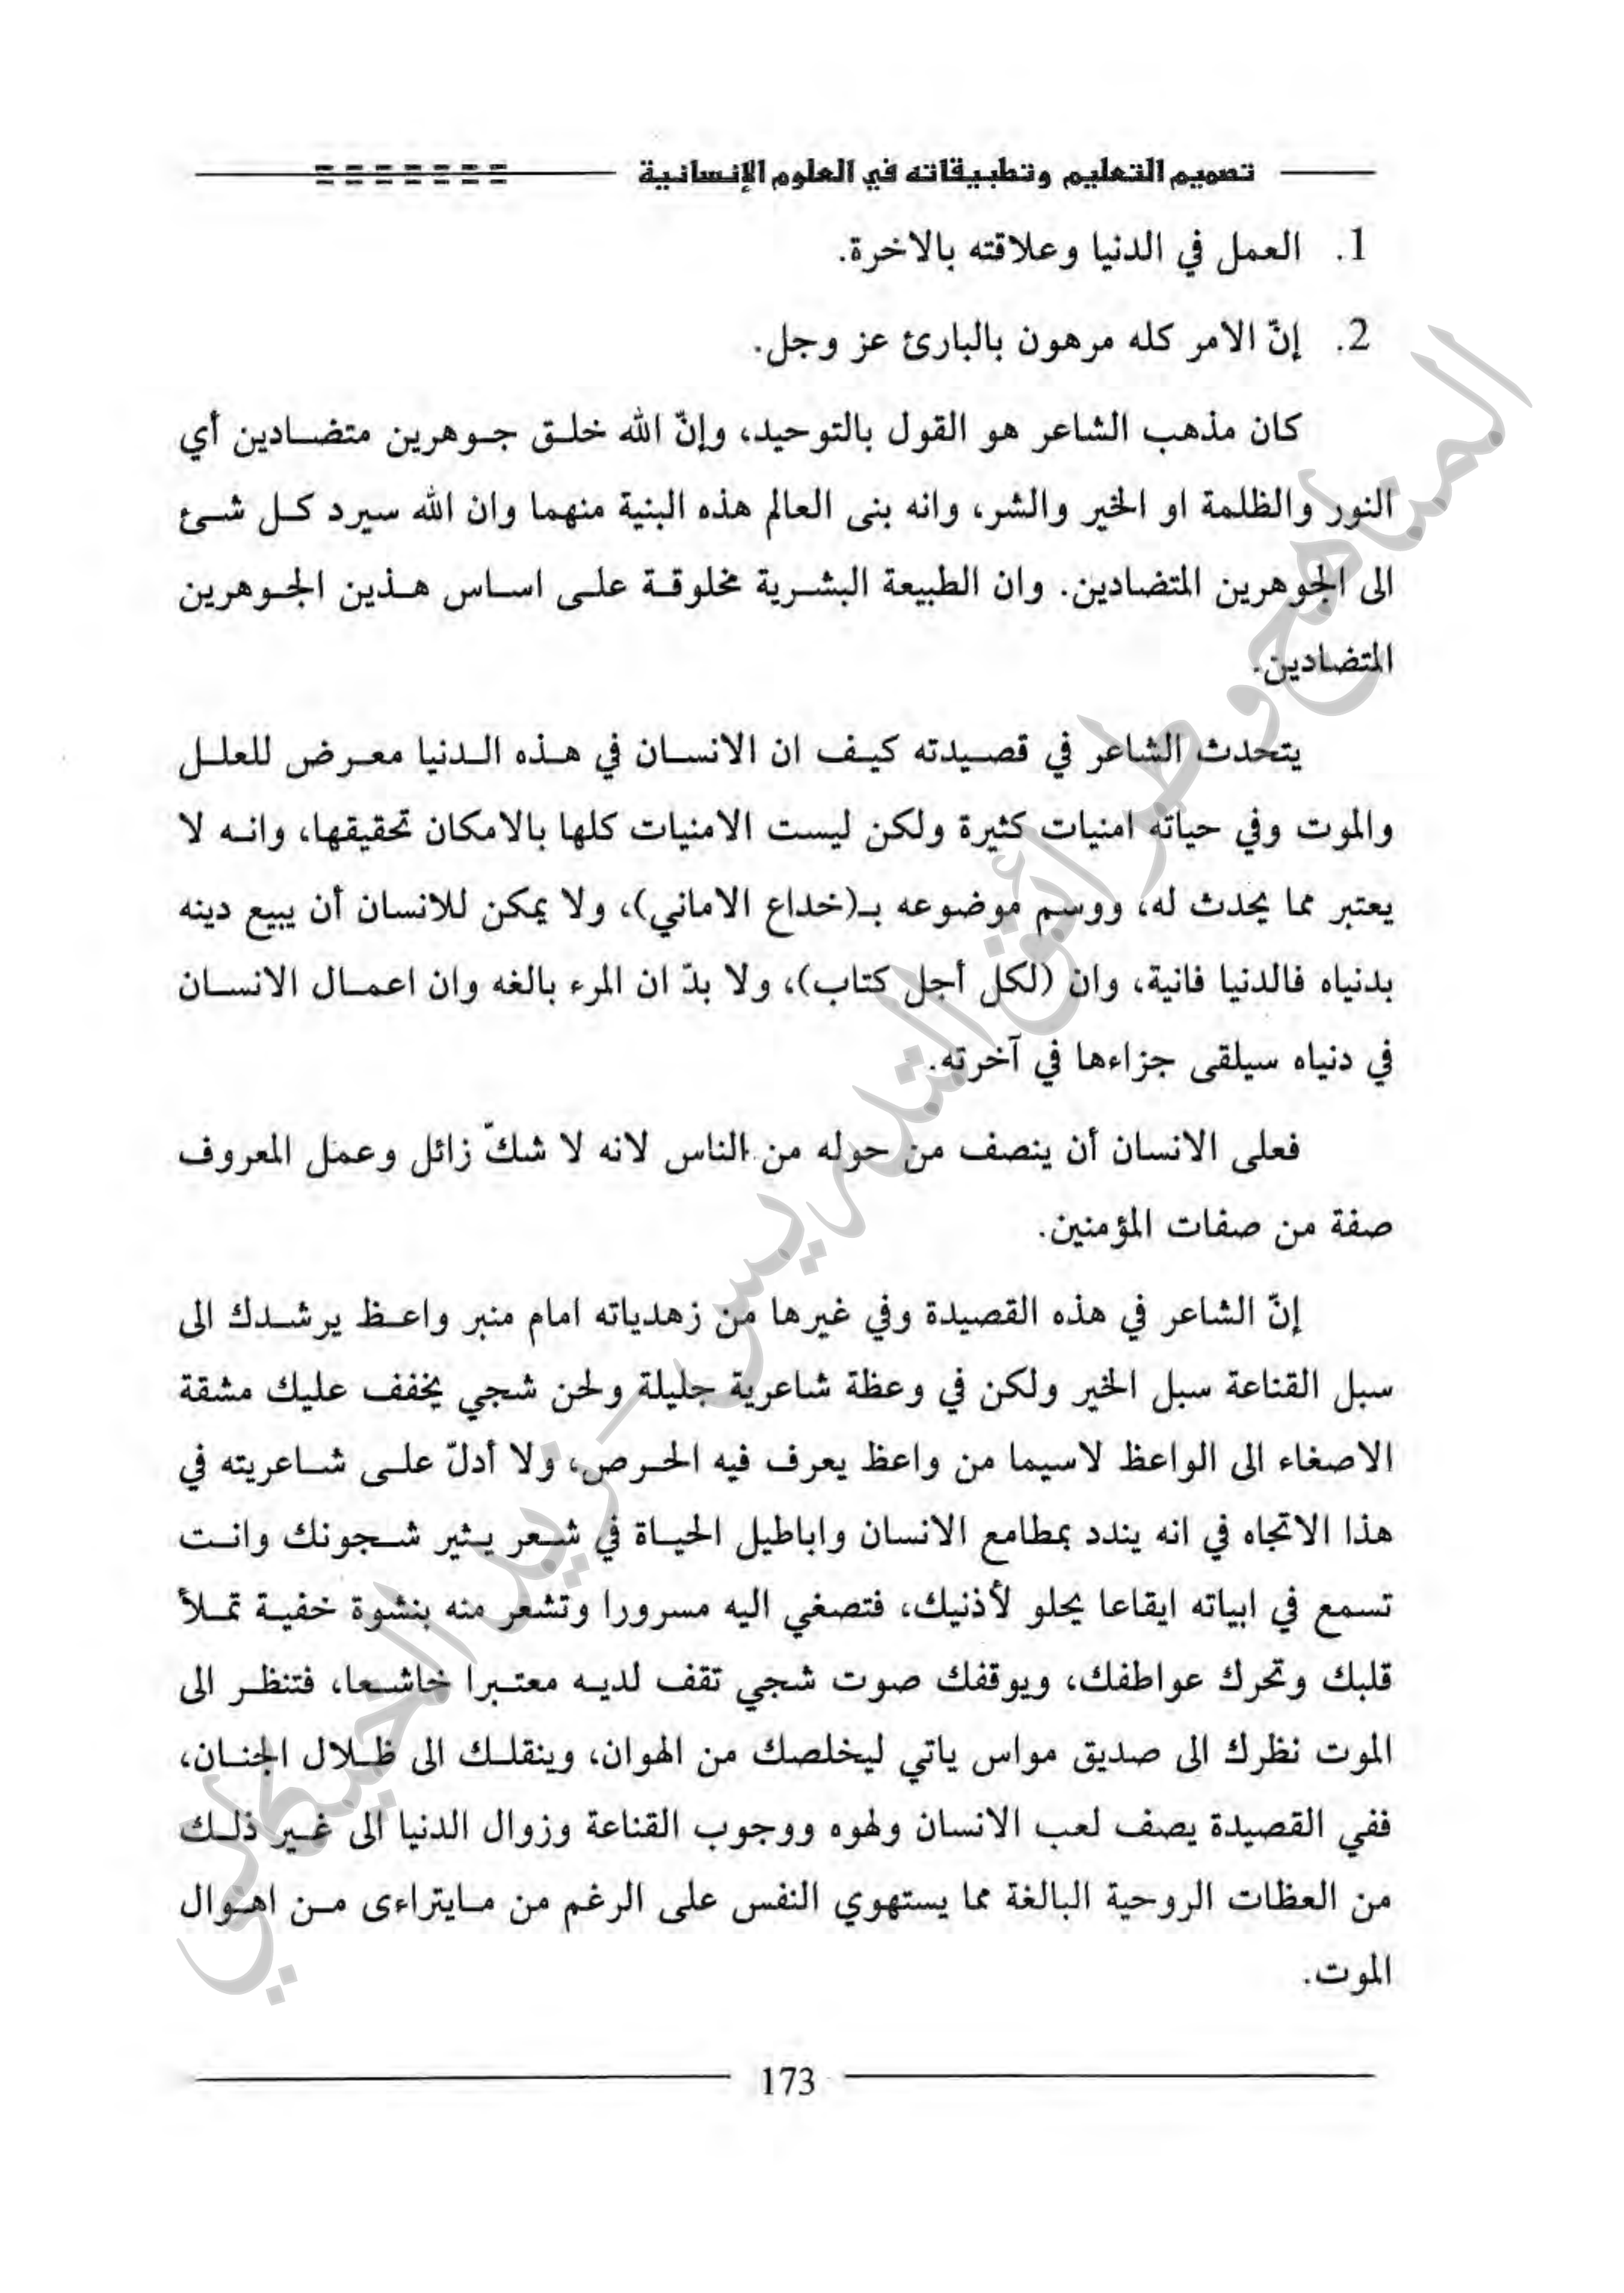 تصميم التعليم وتطبيقاته في العلوم الإنسانية
1. العمل في الدنيا وعلاقته بالاخرة.
2. إنّ الامر كله مرهون بالبارئ عز وجل.
كان مذهب الشاعر هو القول بالتوحيد، وإنّ الله خلق جوهرين متضادين أي
النور والظلمة او الخير والشر، وانه بنى العالم هذه البنية منهما وان الله سيرد كل شئ
الى الجوهرين المتضادين. وان الطبيعة البشرية مخلوقة على اساس هذين الجوهرين
المتضادين.
يتحدث الشاعر في قصيدته كيف ان الانسان في هذه الدنيا معرض للعلل
والموت وفي حياته امنيات كثيرة ولكن ليست الامنيات كلها بالامكان تحقيقها، وانه لا
يعتبر مما يحدث له، ووسم موضوعه بـ(خداع الاماني)، ولا يمكن للانسان أن يبيع دينه
بدنياه فالدنيا فانية، وان (لكل أجل كتاب)، ولا بدّ ان المرء بالغه وان اعمال الانسان
في دنياه سيلقى جزاءها في آخرته.
فعلى الانسان أن ينصف من حوله من الناس لانه لا شكّ زائل وعمل المعروف
صفة من صفات المؤمنين.
إنّ الشاعر في هذه القصيدة وفي غيرها من زهدياته امام منبر واعظ يرشدك الى
سبل القناعة سبل الخير ولكن في وعظة شاعرية جليلة ولحن شجي يخفف عليك مشقة
الاصغاء الى الواعظ لاسيما من واعظ يعرف فيه الحرص، ولا أدلّ على شاعريته في
هذا الاتجاه في انه يندد بمطامع الانسان واباطيل الحياة في شعر يثير شجونك وانت
تسمع في ابياته ايقاعا يحلو لأذنيك، فتصغي اليه مسرورا وتشعر منه بنشوة خفية تملأ
قلبك وتحرك عواطفك، ويوقفك صوت شجي تقف لديه معتبرا خاشعا، فتنظر الى
الموت نظرك الى صديق مواس ياتي ليخلصك من الهوان، وينقلك الى ظلال الجنان،
ففي القصيدة يصف لعب الانسان ولهوه ووجوب القناعة وزوال الدنيا الى غير ذلك
من العظات الروحية البالغة مما يستهوي النفس على الرغم من مايتراءى من اهوال
الموت.
173
المناهج وطرائق التدريس_زيد الخيكاني